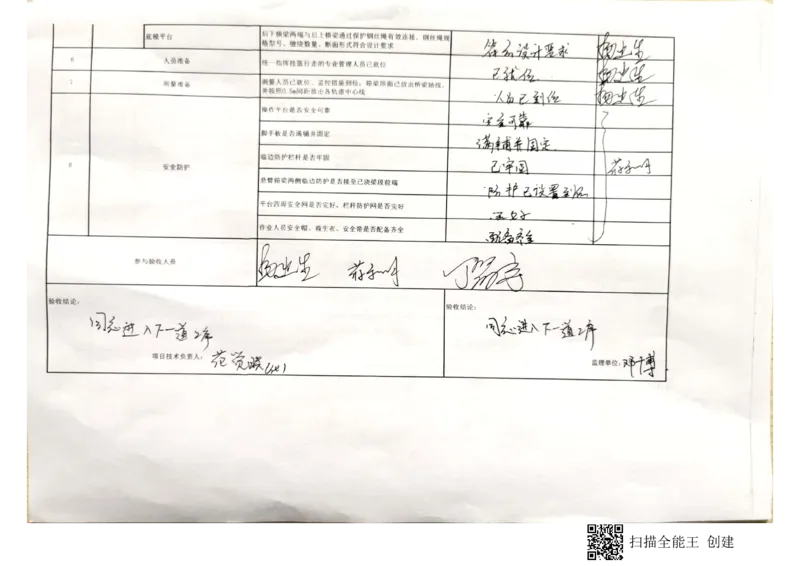 底模平台
后下横梁两端与后上横梁通过保护钢丝绳有效连接、钢丝绳规
格型号、缠绕数量、断面形式符合设计要求
符合设计要求
6
人员准备
统一指挥挂篮行走的专业管理人员已就位
已就位
7
测量准备
测量人员已就位、监控措施到位;箱梁顶面已放出桥梁轴线,
并按照0.5m间距放出各轨道中心线
人员已到位
8
安全防护
操作平台是否安全可靠
安全可靠
脚手板是否满铺并固定
满铺并固定
临边防护栏杆是否牢固
已牢固
悬臂箱梁两侧临边防护是否接至已浇梁段前端
防护已设置到位
平台四周安全网是否完好、栏杆防护网是否完好
完好
作业人员安全帽、救生衣、安全带是否配备齐全
配备齐全
参与验收人员
验收结论:
同意进入下一道工序
项目技术负责人:
验收结论:
同意进入下一道工序
监理单位:
扫描全能王 创建